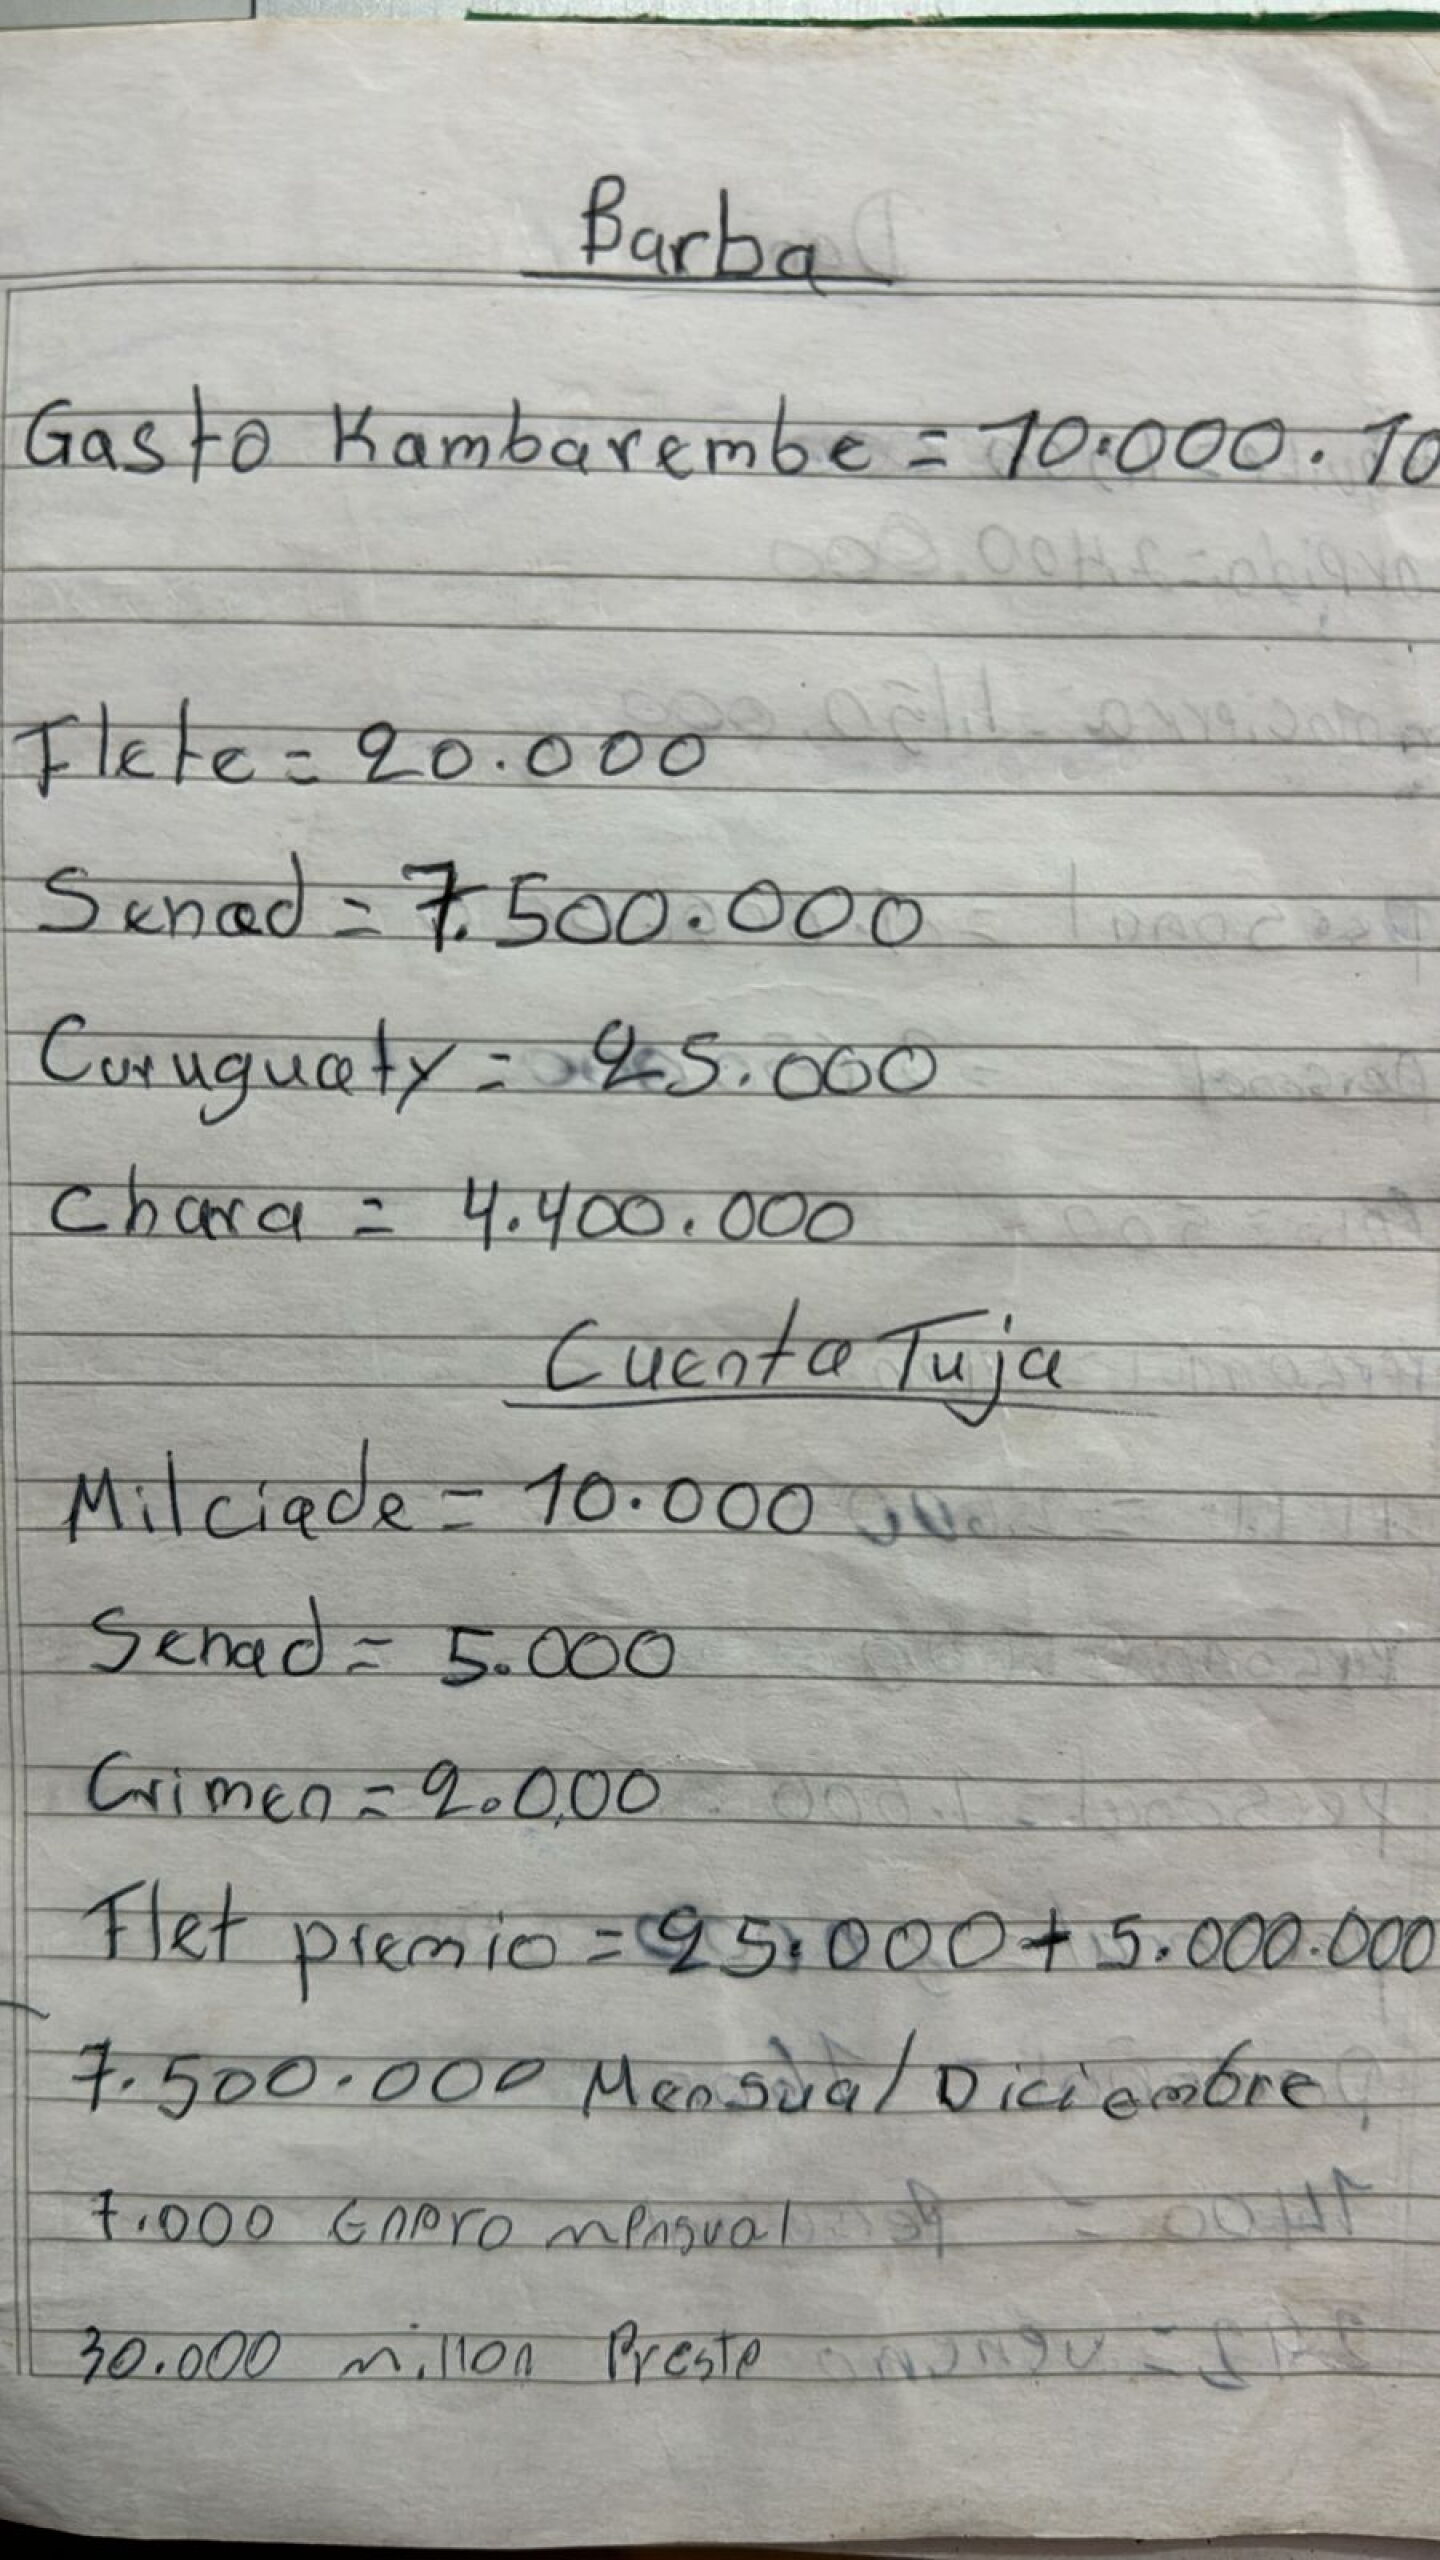 Barba
Gasto Kambarembe = 10.000. 10
Flete = 20.000
Senad = 7.500.000
Curuguaty = 25.000
Chara = 4.400.000
Cuenta Tuja
Milciade = 10.000
Senad = 5.000
Crimen = 2.000
Flet premio = 25.000 + 5.000.000
7.500.000 Mensual Diciembre
7.000 Enero mensual
30.000 millon Preste